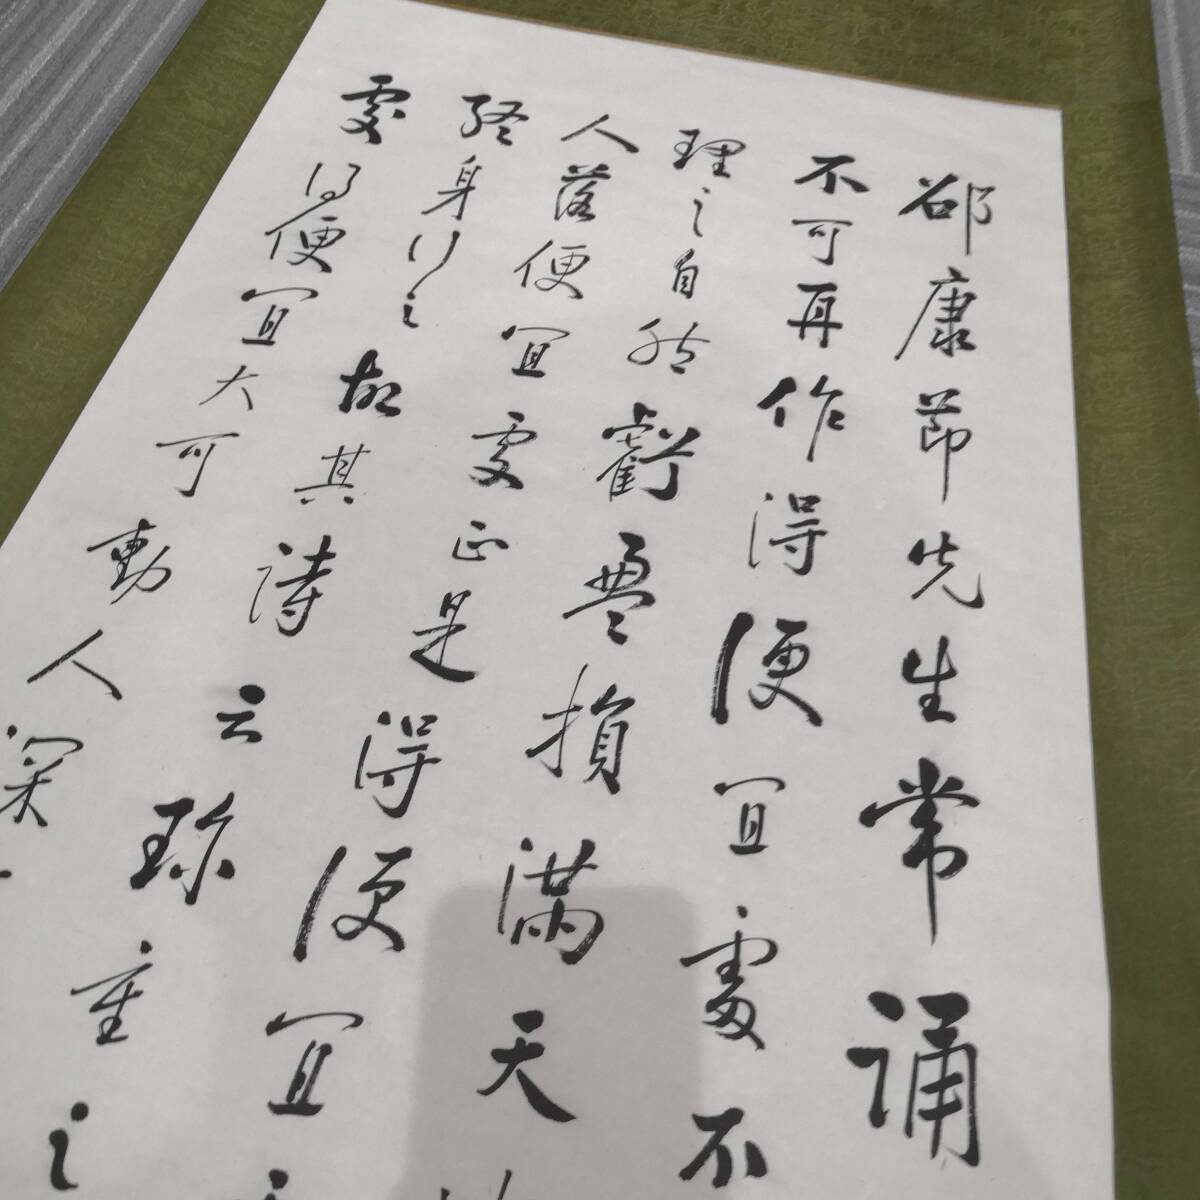 邵康節先生常誦
不可再作得便宜處不
理之自然虧盈損滿天
人落便宜處正是得便宜
終身行之故其詩云珎重之
處得便宜大可動人深